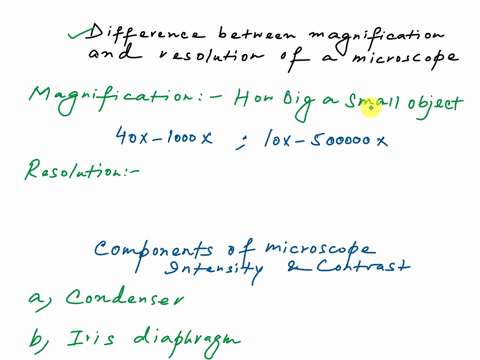 Difference between magnification
and resolution of a microscope
Magnification:- How Big a small object
40x-1000x ; 10x-500000x
Resolution:-
Components of microscope
Intensity & Contrast
a, Condenser
b, Iris diaphragm